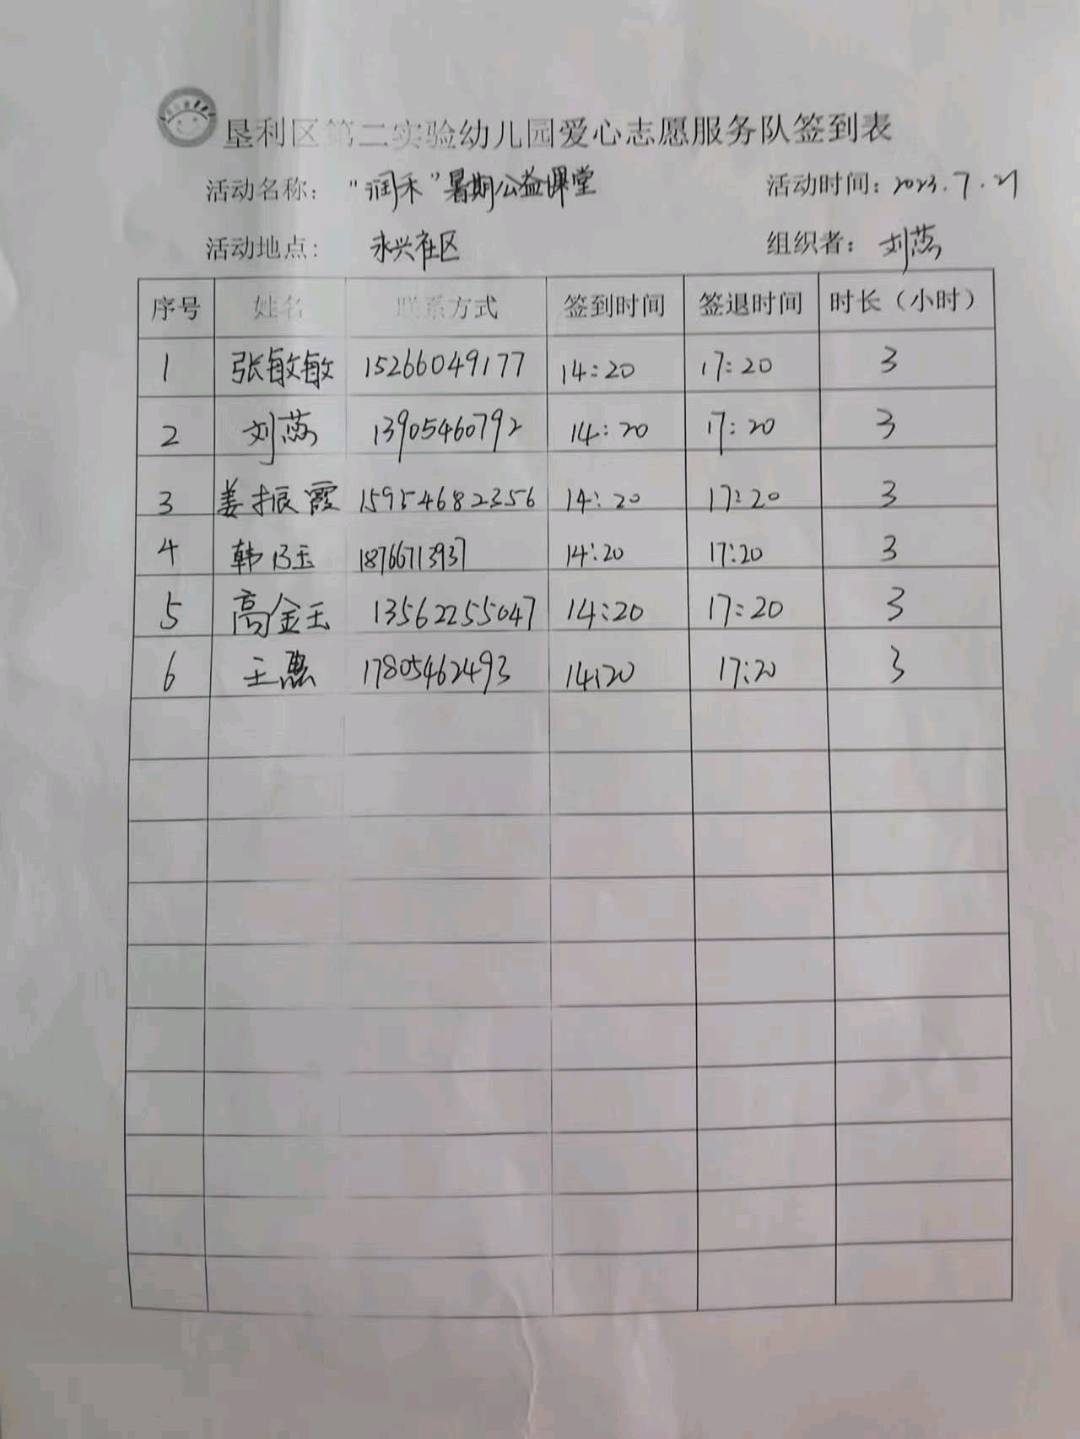 垦利区第二实验幼儿园爱心志愿服务队签到表
活动名称： "润禾"暑期公益课堂 活动时间：2023.7.21
活动地点： 永兴社区 组织者：刘燕
序号 姓名 联系方式 签到时间 签退时间 时长（小时）
1 张敏敏 15266049177 14:20 17:20 3
2 刘燕 13905460792 14:20 17:20 3
3 姜振霞 15954682356 14:20 17:20 3
4 韩玉 18766713937 14:20 17:20 3
5 高金玉 13562255047 14:20 17:20 3
6 王惠 17805462493 14:20 17:20 3